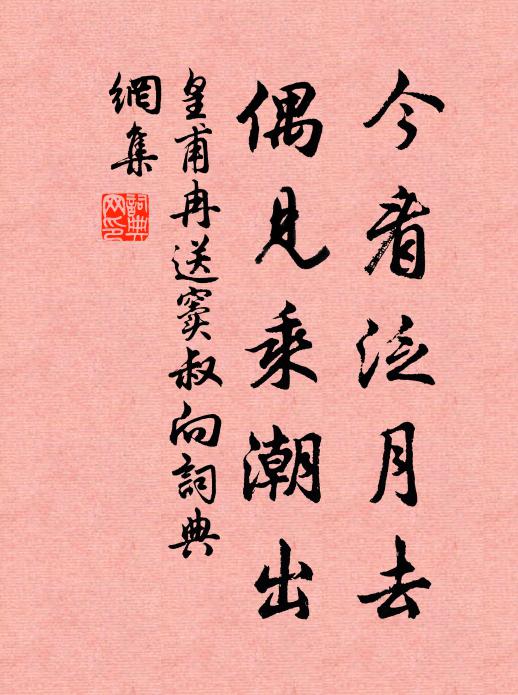 今看泛月去
偶見乘潮出
皇甫冉送竇叔向詞典
網集
詞典
网印